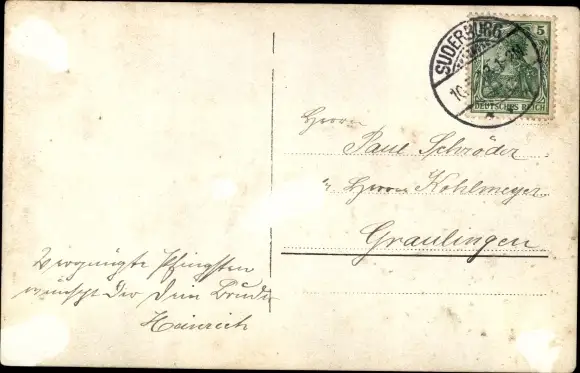 SUDERBURG
10.
5
DEUTSCHES REICH
Herrn
Paul Schröder
Herrn Kohlmeyer
Graulingen
Vergnügte Pfingsten
wünscht Dir Dein Bruder
Heinrich